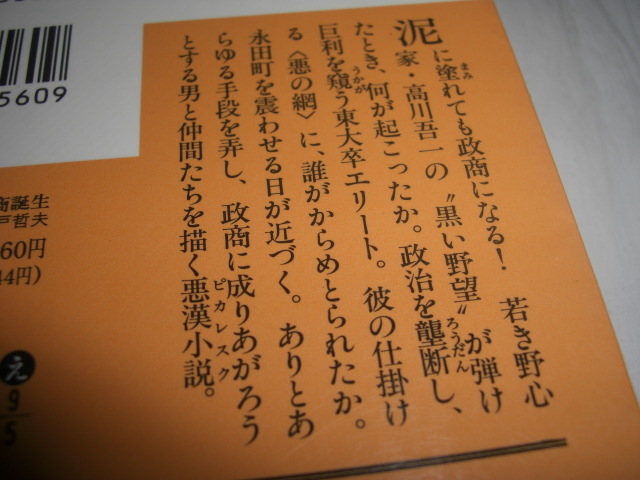 泥に塗れても政商になる！　若き野心
家・高川吾一の〝黒い野望〟が弾け
たとき、何が起こったか。政治を壟断し、
巨利を窺う東大卒エリート。彼の仕掛け
る〈悪の網〉に、誰がからめとられたか。
永田町を震わせる日が近づく。ありとあ
らゆる手段を弄し、政商に成りあがろう
とする男と仲間たちを描く悪漢小説。
まみ
ろうだん
うかが
ピカレスク
5609
商誕生
戸哲夫
60円
44円）
え
9
5